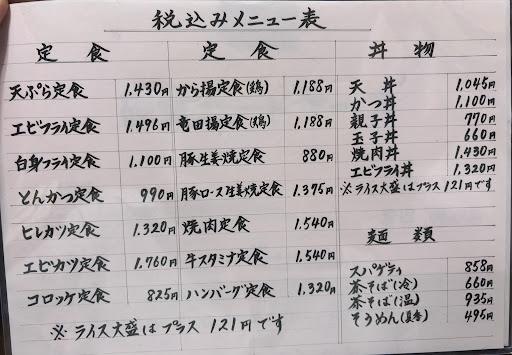 税込みメニュー表
定食
天ぷら定食 1,430円
エビフライ定食 1,496円
白身フライ定食 1,100円
とんかつ定食 990円
ヒレカツ定食 1,320円
エビカツ定食 1,760円
コロッケ定食 825円
定食
から揚定食(鶏) 1,188円
竜田揚定食(鶏) 1,188円
豚生姜焼定食 880円
豚ロース生姜焼定食 1,375円
焼肉定食 1,540円
牛スタミナ定食 1,540円
ハンバーグ定食 1,320円
※ ライス大盛はプラス 121円です
丼物
天丼 1,045円
かつ丼 1,100円
親子丼 770円
玉子丼 660円
焼肉丼 1,430円
エビフライ丼 1,320円
※ライス大盛はプラス 121円です
麺類
スパゲティ 858円
茶そば(冷) 660円
茶そば(温) 935円
そうめん 495円